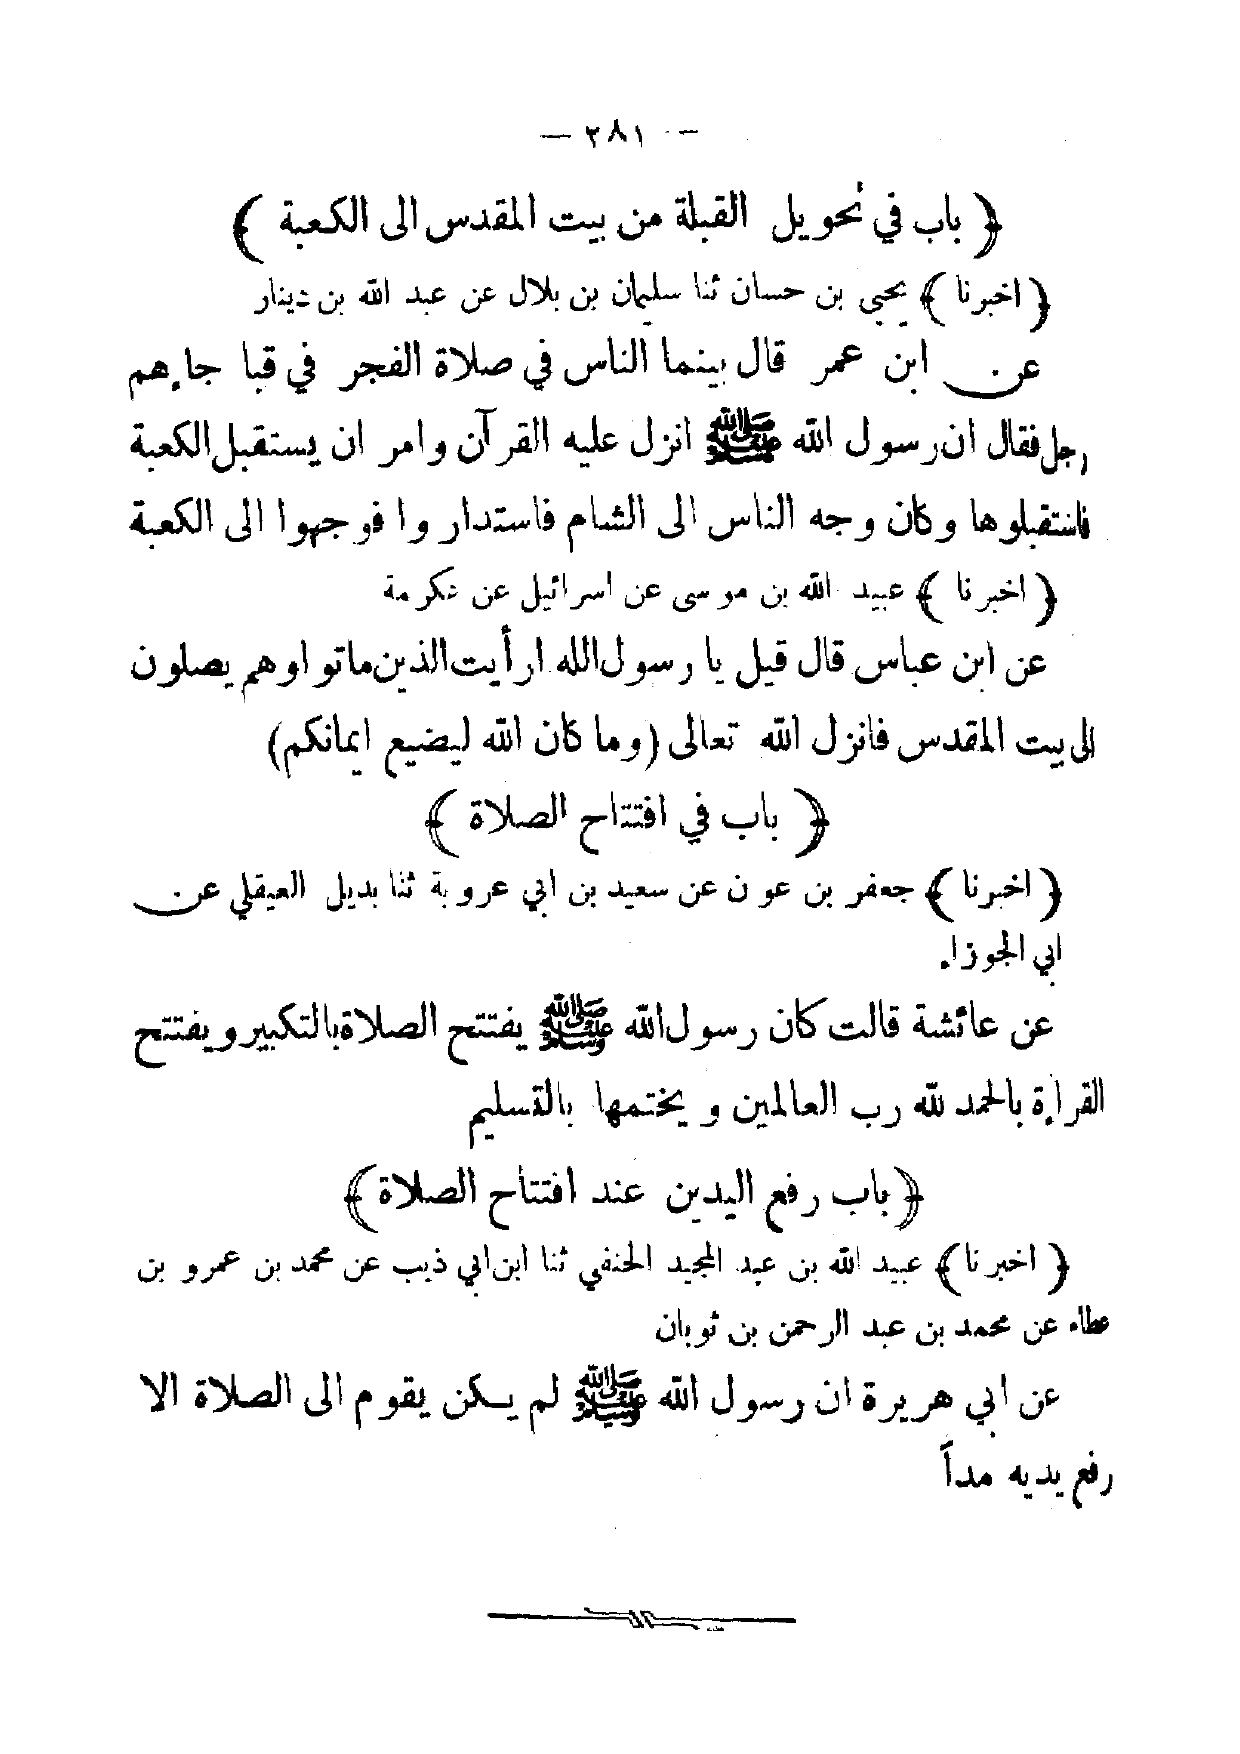 — ٢٨١ —
﴿ باب في تحويل القبلة من بيت المقدس الى الكعبة ﴾
﴿ اخبرنا ﴾ يحيى بن حسان ثنا سليمان بن بلال عن عبد الله بن دينار
عن ابن عمر قال بينما الناس في صلاة الفجر في قبا جاءهم
رجل فقال ان رسول الله ﷺ انزل عليه القرآن وامر ان يستقبل الكعبة
فاستقبلوها وكان وجه الناس الى الشام فاستداروا فوجهوا الى الكعبة
﴿ اخبرنا ﴾ عبيد الله بن موسى عن اسرائيل عن عكرمة
عن ابن عباس قال قيل يا رسول الله ارأيت الذين ماتوا وهم يصلون
الى بيت المقدس فانزل الله تعالى (وما كان الله ليضيع ايمانكم)
﴿ باب في افتتاح الصلاة ﴾
﴿ اخبرنا ﴾ جعفر بن عون عن سعيد بن ابي عروبة ثنا بديل العيقلي عن
ابي الجوزاء
عن عائشة قالت كان رسول الله ﷺ يفتتح الصلاة بالتكبير ويفتتح
القراءة بالحمد لله رب العالمين و يختمها بالتسليم
﴿ باب رفع اليدين عند افتتاح الصلاة ﴾
﴿ اخبرنا ﴾ عبيد الله بن عبد المجيد الحنفي ثنا ابن ابي ذيب عن محمد بن عمرو بن
عطاء عن محمد بن عبد الرحمن بن ثوبان
عن ابي هريرة ان رسول الله ﷺ لم يكن يقوم الى الصلاة الا
رفع يديه مداً